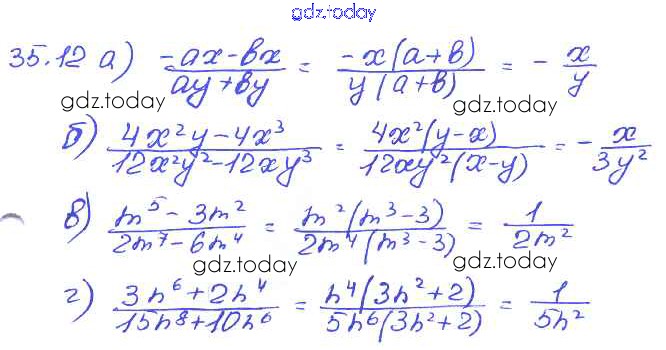 gdz.today
35.12 а) (-ax-bx)/(ay+by) = (-x(a+b))/(y(a+b)) = - x/y
gdz.today gdz.today
б) (4x²y-4x³)/(12x²y²-12xy³) = (4x²(y-x))/(12xy²(x-y)) = - x/(3y²)
в) (m⁵-3m²)/(2m⁷-6m⁴) = (m²(m³-3))/(2m⁴(m³-3)) = 1/(2m²)
gdz.today gdz.today
г) (3n⁶+2n⁴)/(15n⁸+10n⁶) = (n⁴(3n²+2))/(5n⁶(3n²+2)) = 1/(5n²)